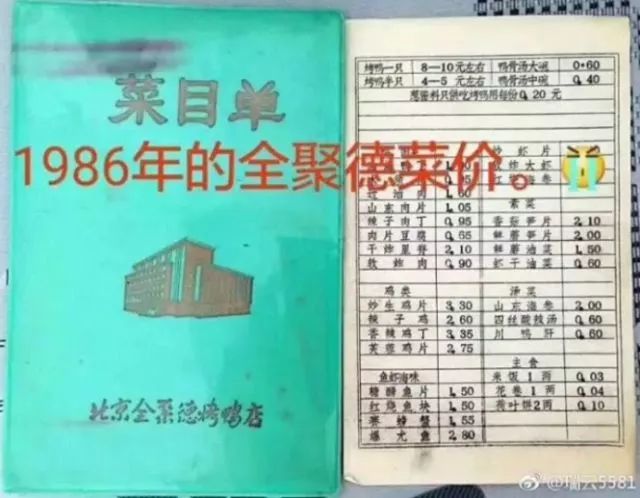 菜目单
1986年的全聚德菜价。
北京全聚德烤鸭店
烤鸭一只 8—10元左右 鸭骨汤大碗 0.60
烤鸭半只 4—5元左右 鸭骨汤中碗 0.40
葱酱料只供吃烤鸭用每份0.20元
炒虾片
炸大虾
过油肉 1.60
山东肉片 1.05 素菜
辣子肉丁 0.95 香菇笋片 2.10
肉片豆腐 0.65 鲜蘑笋片 2.00
干炸里脊 2.10 鲜蘑油菜 1.50
软炸肉 0.90 虾干油菜 0.60
鸡类 汤菜
炒生鸡片 3.30 山东海参 2.00
辣子鸡 2.60 四丝酸辣汤 0.60
香辣鸡丁 3.35 川鸭肝 0.60
芙蓉鸡片 2.75
主食
鱼虾海味 米饭1两 0.03
糟醉鱼片 1.50 花卷1两 0.04
红烧鱼块 1.50 荷叶饼2两 0.10
赛螃蟹 1.55
爆尤鱼 2.80